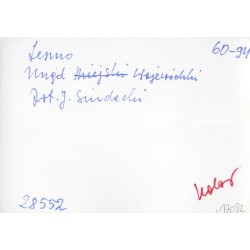 Leszno
60-94
Urząd Miejski Wojewódzki
Fot. J. Sindecki
Kolor
28552
17092